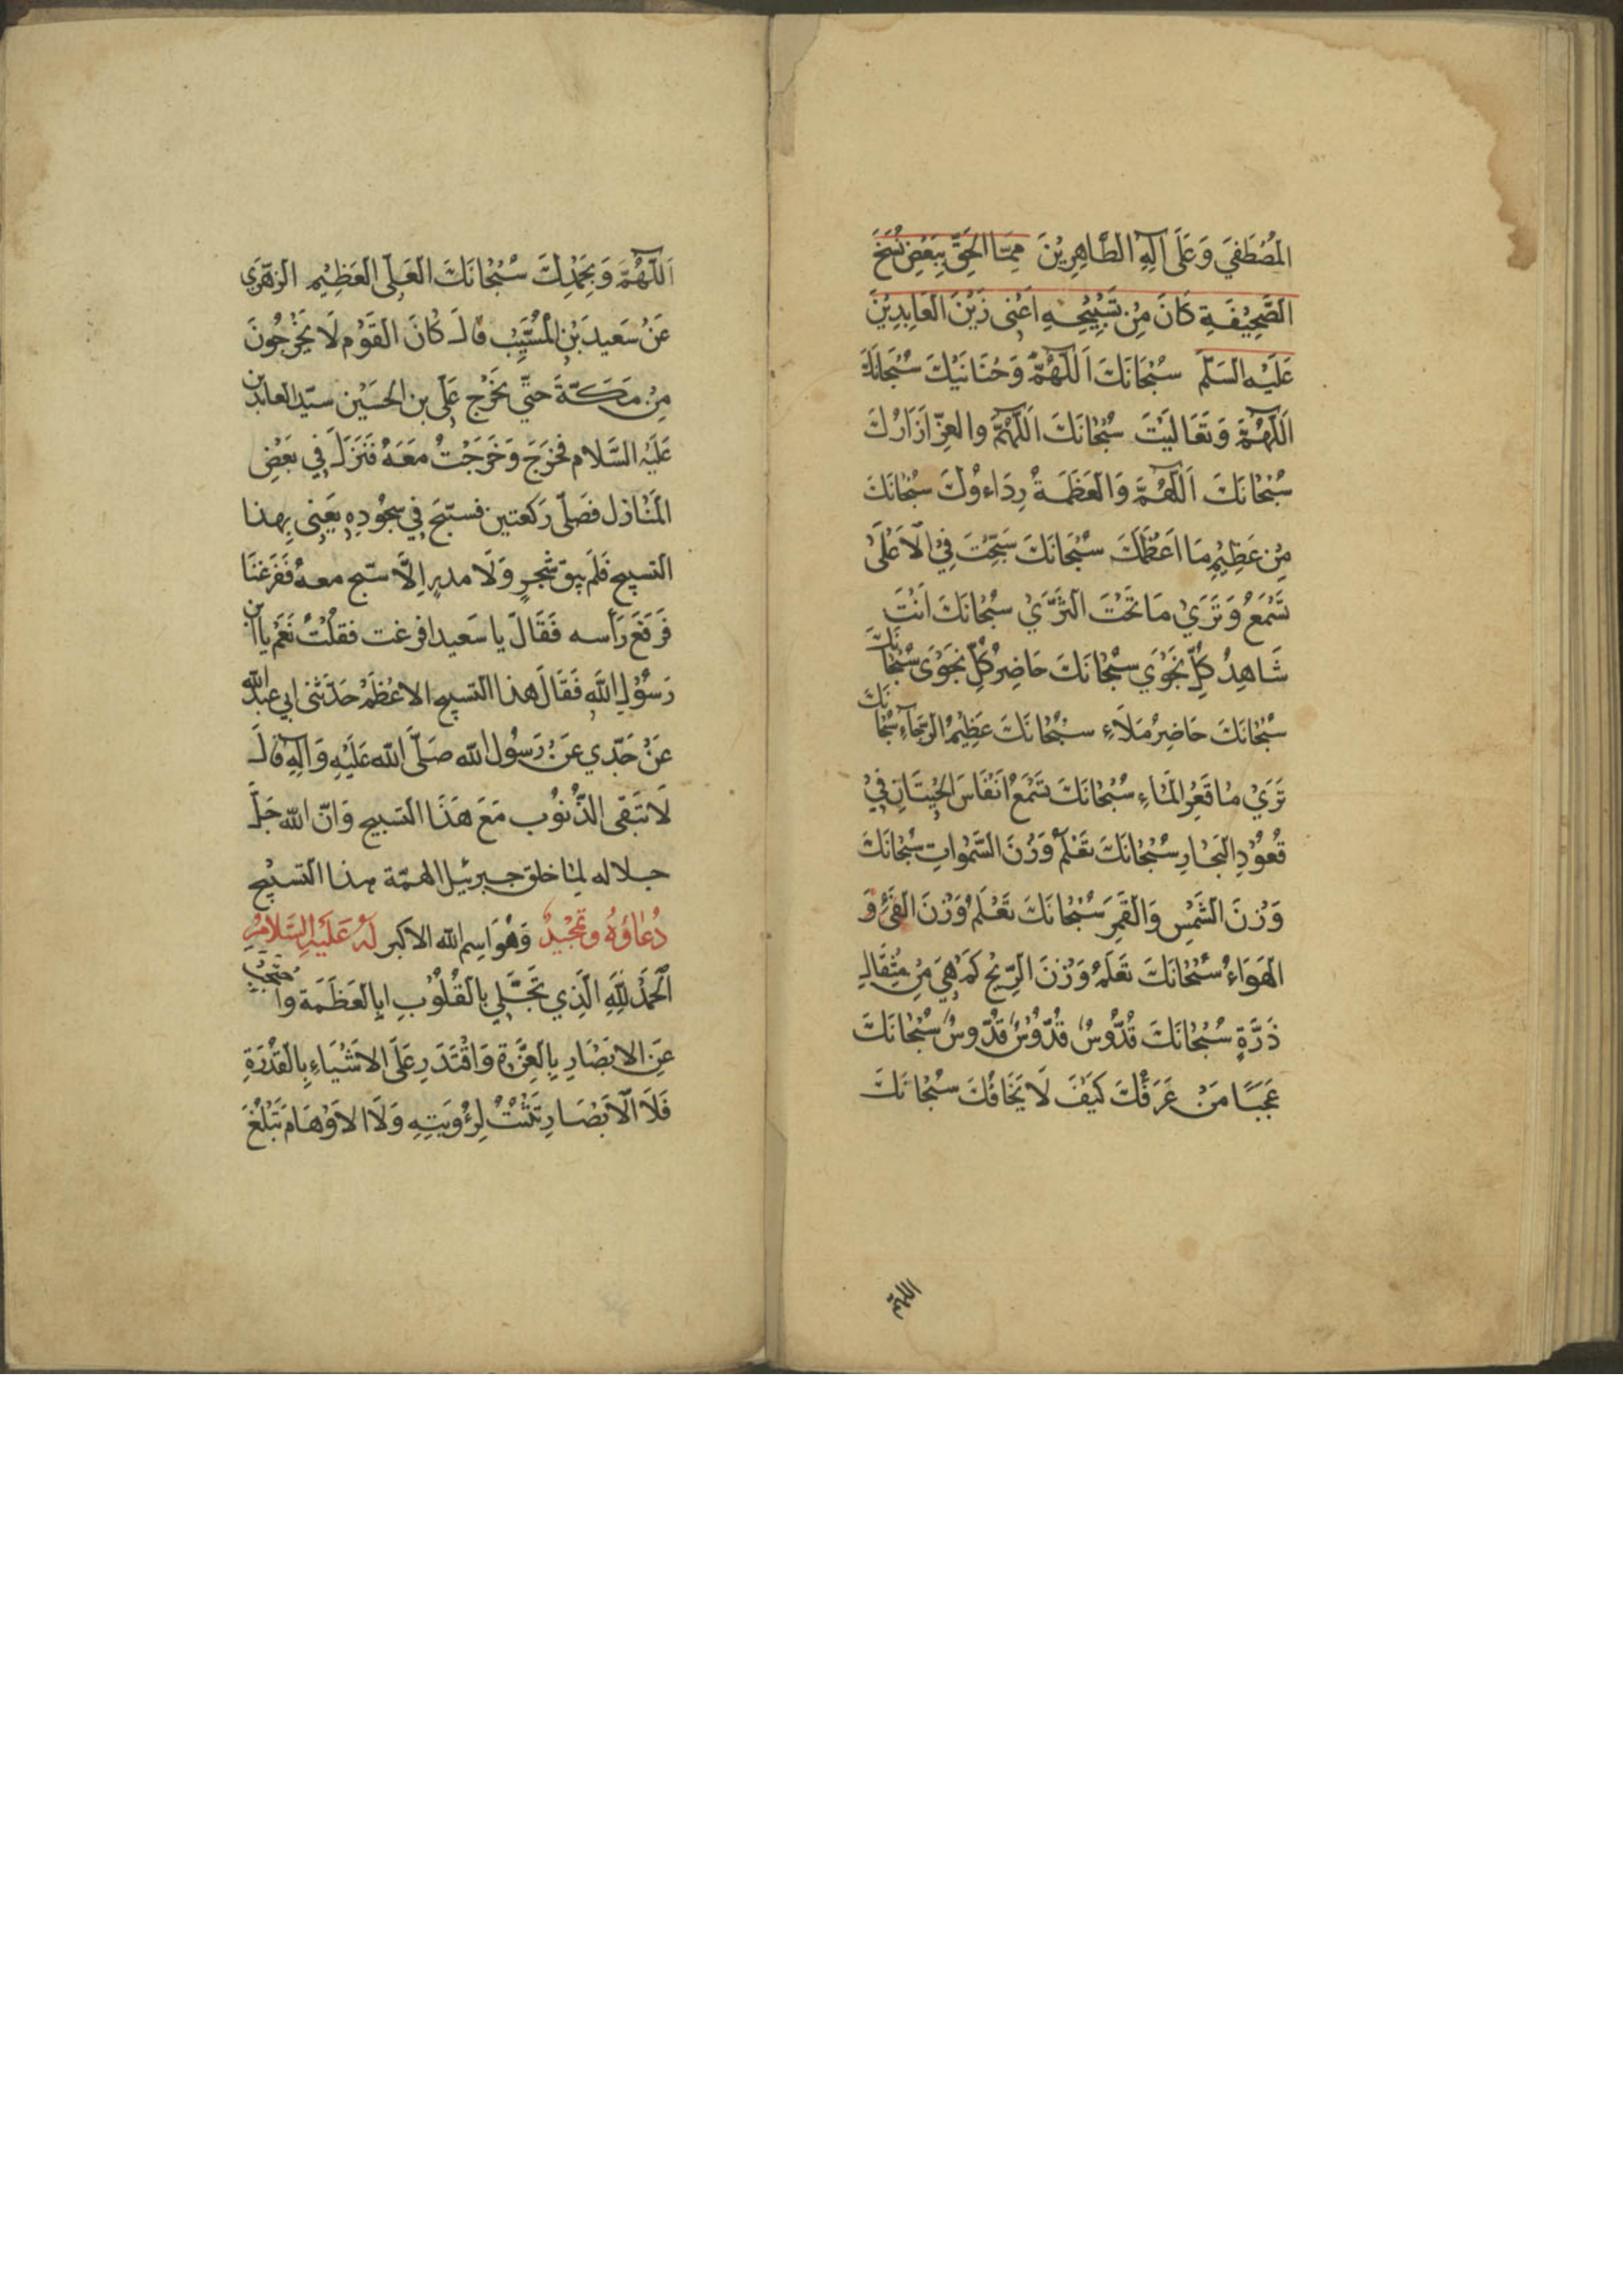 المُصْطَفيَ وَعَلَى آلِهِ الطَّاهِرِيْنَ مِمَّا الحِقَ بِبَعْضِ نُسَخَ
الصَّحِيْفَةِ كَانَ مِنْ تَسْبِيْحِهِ اَعْنِى زَيْنَ العَابِدِيْنَ
عَلَيْهِ السَّلَمْ سُبْحَانَكَ اَللَّهُمَّ وَحَنَانَيْكَ سُبْحَانَكَ
اَللَّهُمَّ وَتَعَالَيْتَ سُبْحَانَكَ اَللَّهُمَّ والعِزُّ اَزَارُكَ
سُبْحَانَكَ اَللَّهُمَّ وَالعَظَمَةُ رِدَاءوُكَ سُبْحَانَكَ
مِنْ عَظِيْمٍ مَا اَعْظَمَكَ سُبْحَانَكَ سُبِّحْتَ فِيْ الْاَعْلَىْ
تَسْمَعُ وَتَرَيْ مَا تَحْتَ الثَّرَيْ سُبْحَانَكَ اَنْتَ
شَاهِدُ كُلِّ نَجْوَيَ سُبْحَانَكَ حَاضِرُ كُلِّ نَجْوَىَ سُبْحَانَكَ
سُبْحَانَكَ حَاضِرُ مَلَاءِ سُبْحَانَكَ عَظِيْمُ الرَّجَآءِ سُبْحَانَكَ
تَرَيْ مَا قَعْرِ المَاءِ سُبْحَانَكَ تَسْمَعُ اَنْفَاسَ الحِيْتَانِ فِيْ
قُعُوْدِ البِحَارِ سُبْحَانَكَ تَعْلَمُ وَزْنَ السَّمٰوَاتِ سُبْحَانَكَ
وَزْنَ الشَّمْسِ وَالقَمَرِ سُبْحَانَكَ تَعْلَمُ وَزْنَ الفَيْءِ وَ
الهَوَاءُ سُبْحَانَكَ تَعْلَمُ وَزْنَ الرِّيْحِ كَمْ هِيَ مِنْ مِثْقَالِ
ذَرَّةٍ سُبْحَانَكَ قُدُّوْسٌ قُدُّوْسٌ قُدُّوسٌ سُبْحَانَكَ
عَجَبًا مَنْ عَرَفَكَ كَيْفَ لَا يَخَافُكَ سُبْحَانَكَ
اللهمّ
اَللَّهُمَّ وَبِحَمْدِكَ سُبْحَانَكَ العَلِى العَظِيْمِ الزهْرَيِ
عَنْ سَعِيدَ بْنِ المُسَيِّبْ قالَ كَانَ القَوْم لَا يَخْرُجُونَ
مِنْ مَكَّةَ حَتّي يَخْرُج عَلَى بن الحُسَيْن سيّد العابدين
عَلَيْهِ السَّلَام فَخَرَجَ وَخَرَجْتُ مَعَهُ فَنَزَلَ فِي بَعْضِ
المَنَازل فَصَلّى رَكعتين فسبّحَ فِي سجُودِهِ يَعْنِى بِهذا
التسبيح فَلَم يبق شَجرٍ وَلَا مدرٍ اِلَّا سبّح معهُ فَفَزعْنَا
فَرَفَعَ رَأسه فَقَالَ يا سَعيد افزعت فقلْتُ نَعَمْ يا ابن
رَسُوْلِ اللَّهِ فَقَالَ هذا التسبيح الاعْظَمْ حَدّثنى ابي عبدالله
عَنْ جَدّي عَنْ رَسُول الله صَلّى الله عَلَيْهِ وَآلِهِ قالَ
لَا تَبقَى الذُّنُوب مَعَ هَذَا التسبيح وَانّ الله جَلَّ
جلاله لمّا خلق جبرئيل الهمّه هذا التسبيْح
دُعَاؤهُ وتَمْجِيْدٌ وَهُوَ اسم الله الاكبر لَهُ عَلَيْهِ السَّلَامُ
اَلحَمْدُ لِلَّهِ الَّذِي تَجَلَّي بالقُلُوْبِ اِبالعَظَمَةِ واحتجب
عَنِ الابْصَارِ بِالعِزَّةِ وَاقْتَدَرَ عَلَى الاشْيَاءِ بِالقُدْرَةِ
فَلَا الْاَبْصَارِ تَثْبُتُ لِرُؤوَيَتِهِ وَلَا الاَوْهَامَ تَبْلُغُ